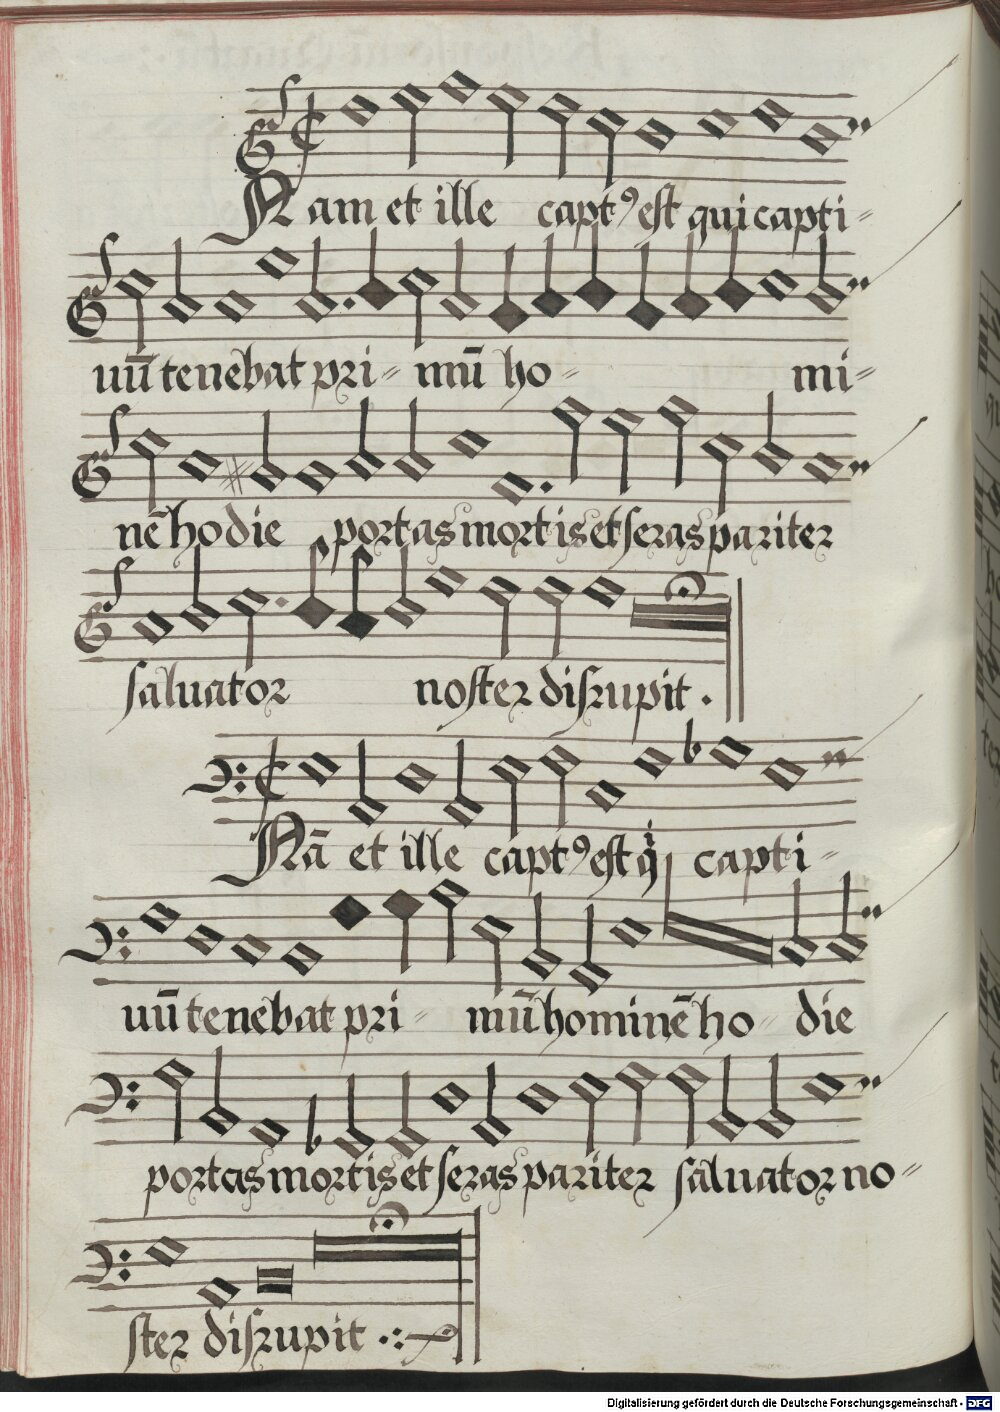 Nam et ille captꝰ est qui capti=
uū tenebat pri= mū ho= mi=
nē hodie portas mortis et seras pariter
saluator noster disrupit.
Nā et ille captꝰ est q̇ capti=
uū tenebat pri= mū hominē ho= die
portas mortis et seras pariter saluator no=
ster disrupit .:~
Digitalisierung gefördert durch die Deutsche Forschungsgemeinschaft - DFG